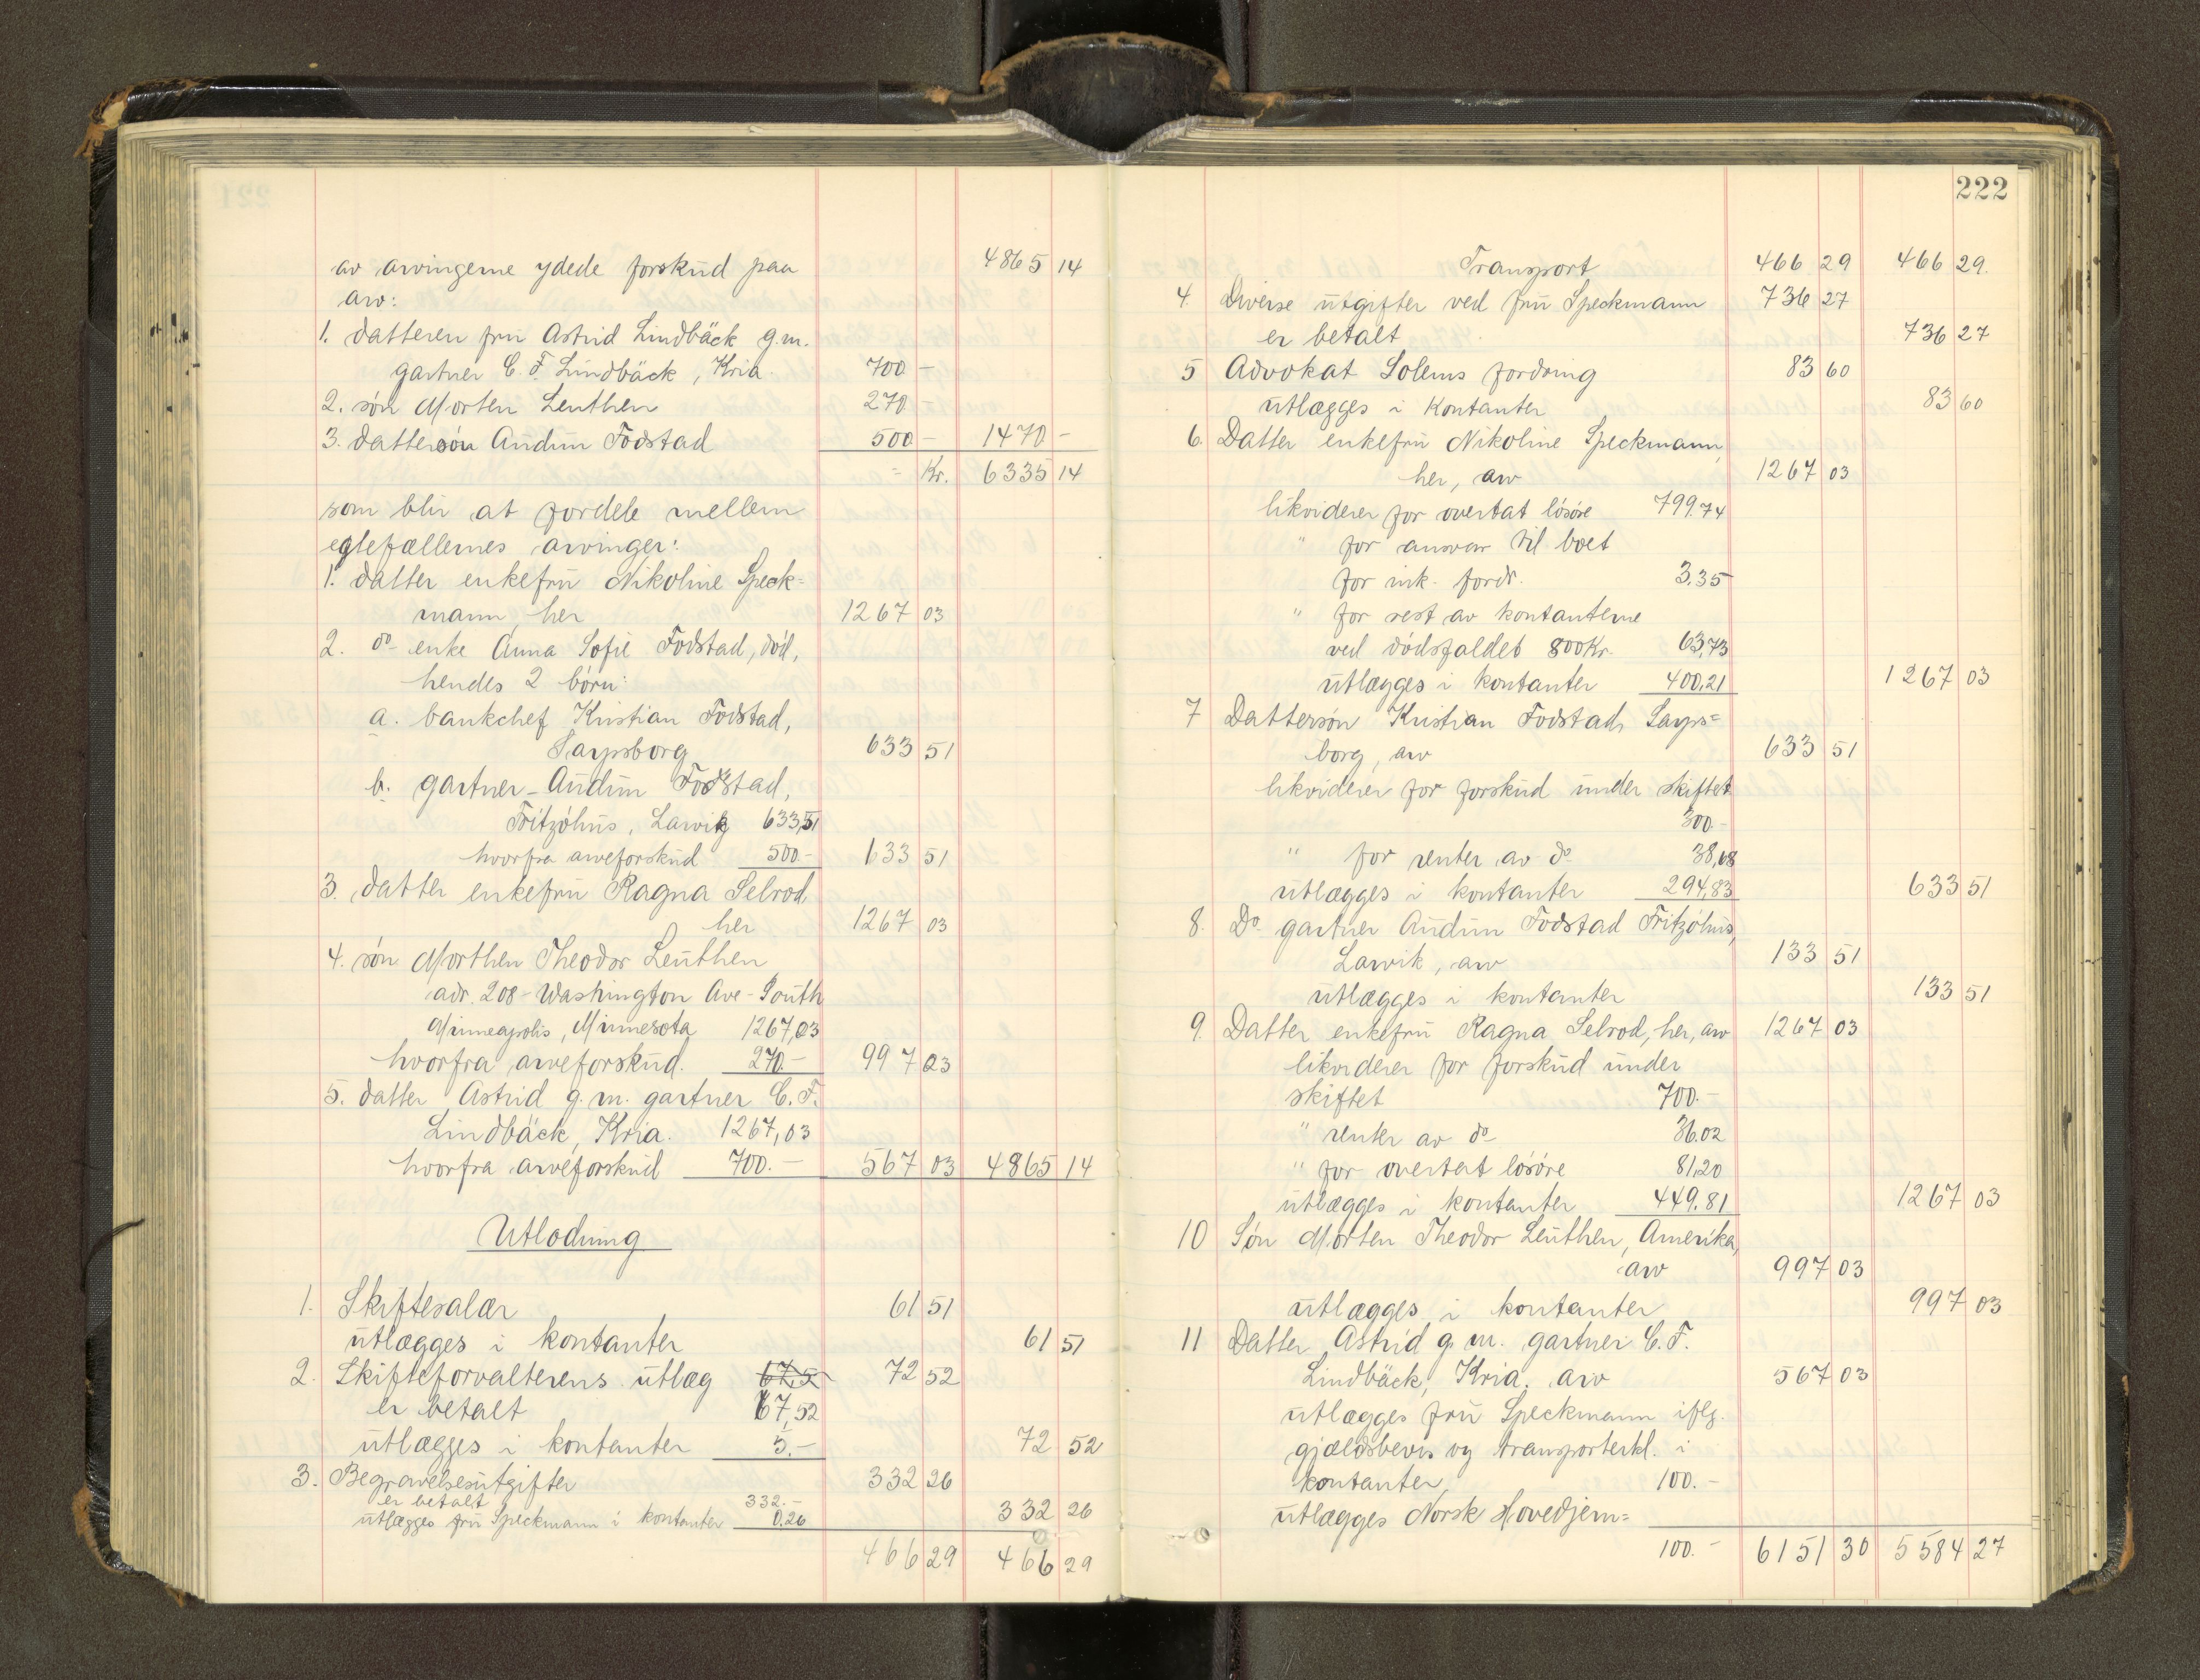 av arvingerne ydede forskud paa 4865 14
arv:
1. datteren fru Astrid Lindbäck g.m.
gartner C. F. Lindbäck, Kria. 700 -
2. søn Morten Leuthen 270 -
3. dattersøn Audun Fodstad 500 - 1470 -
= Kr. 6335 14
som blir at fordele mellem
egtefællernes arvinger:
1. datter enkefru Nikoline Speck=
mann, her 1267 03
2. do enke Anna Sofie Fodstad, død,
hendes 2 børn:
a. bankchef Kristian Fodstad,
Sarpsborg 633 51
b. gartner - Audun Fodstad,
Fritzøhus, Larvik 633,51
hvorfra arveforskud 500.- 133 51
3. datter enkefru Ragna Selrod
her 1267 03
4. søn Morthen Theodor Leuthen
adr. 208 - Washington Ave - South
Minneapolis, Minnesota 1267,03
hvorfra arveforskud. 270.- 997 03
5. datter Astrid g. m. gartner C. F.
Lindbäck, Kria. 1267,03
hvorfra arveforskud 700.- 567 03 4865 14
Utlodning
1. Skiftesalær 61 51
utlægges i kontanter 61 51
2. Skifteforvalterens utlæg 67,5 72 52
er betalt 67,52
utlægges i kontanter 5.- 72 52
3. Begravelsesutgifter 332 26
er betalt 332.-
utlægges fru Speckmann i kontanter 0.26 332 26
466 29 466 29
222
Transport 466 29 466 29.
4. Diverse utgifter ved fru Speckmann 736 27
er betalt 736 27
5 Advokat Solems fordring 83 60
utlægges i kontanter 83 60
6. Datter enkefru Nikoline Speckmann,
her, arv 1267 03
likviderer for overtat løsøre 799.74
" for ansvar til boet
for ink. fordr. 3.35
" for rest av kontanterne
ved dødsfaldet 800 Kr. 63,73
utlægges i kontanter 400,21 1267 03
7 Dattersøn Kristian Fodstad, Sarps=
borg, arv 633 51
likviderer for forskud under skiftet
300.-
" for renter av do 38,68
utlægges i kontanter 294,83 633 51
8. Do gartner Audun Fodstad Fritzøhus,
Larvik, arv 133 51
utlægges i kontanter 133 51
9. Datter enkefru Ragna Selrod, her, arv 1267 03
likviderer for forskud under
skiftet 700.-
" renter av do 36.02
" for overtat løsøre 81,20
utlægges i kontanter 449.81 1267 03
10 Søn Morten Theodor Leuthen, Amerika,
arv 997 03
utlægges i kontanter 997 03
11 Datter Astrid g. m. gartner C. F.
Lindbäck, Kria. arv 567 03
utlægges fru Speckmann iflg.
gjældsbevis og transporterkl. i
kontanter 100.-
utlægges Norsk Hovedjern=
100.- 6151 30 5584 27